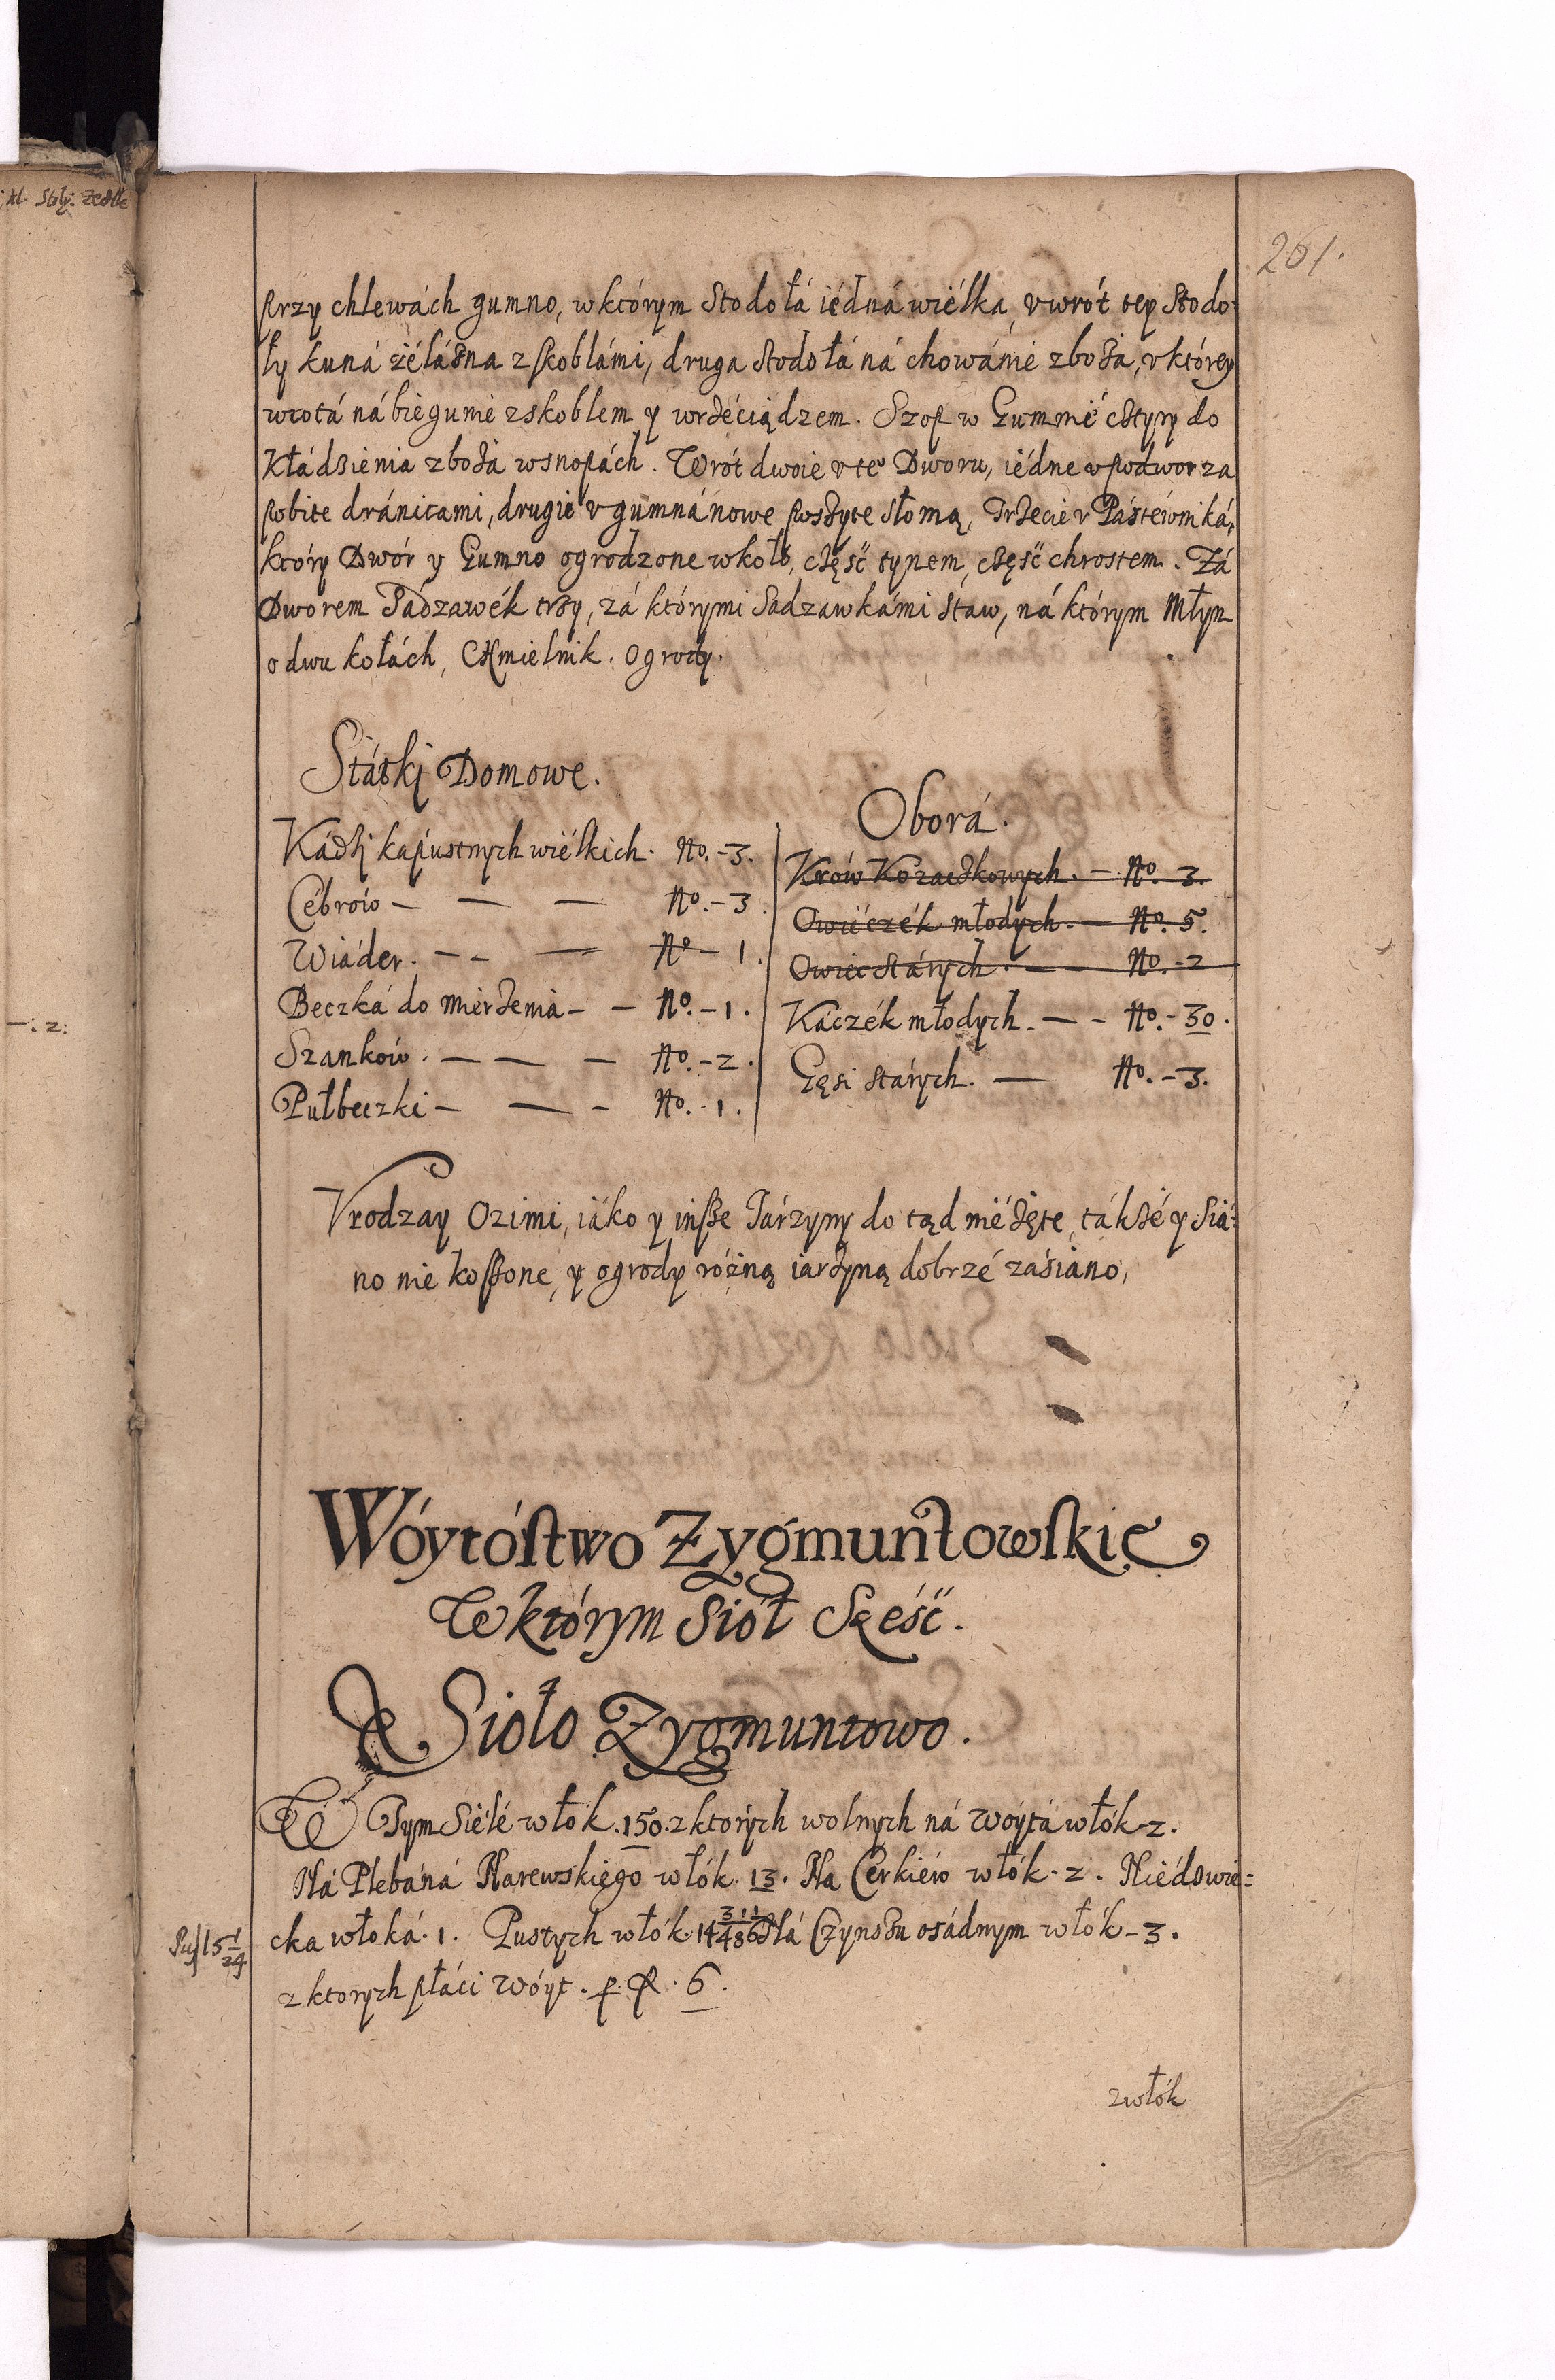 kl. Stoły. Zedle
—: 2:
261.
przy chlewách gumno, w którym Stodołá iédná wiélka, v wrót tey Stodo-
ły kuná żélázna z skoblámi, druga stodołá ná chowánie zboża, v którey
wrotá ná biegunie z skoblem y wrzéciądzem. Szop w Gumnié cztyry do
kłádzienia zboża w snopách. Wrót dwoie v te° Dworu, iédne w podworza
pobite dránicami, drugié v gumná nowe poszyte słomą, Trzecie v Pástéwniká,
który Dwór y Gumno ogrodzone wkoło, część tynem, część chrostem. Zá
Dworem Sadzawék trzy, zá którymi Sadzawkámi staw, ná którym Młyn
o dwu kołách, Chmielnik. Ogrody.
Státki Domowe.
Kádzi kapustnych wiélkich. No. – 3.
Cébrów – — — No. – 3.
Wiáder. – – — No – 1.
Beczká do mierzenia – – No. – 1.
Szanków. — — – No. – 2.
Pułbeczki – — – No. – 1.
Oborá.
Krów Kozaczkowych. – No. 3.
Owiéczék młodych. – No. 5.
Owiec stárych. — – No. – 2
Káczék młodych. — – No. – 30.
Gęsi stárych. — No. – 3.
Vrodzay Ozimi, iáko y insze Járzyny do tąd nié zęte, tákżé y Siá-
no nie koszone, y ogrody różną iarzyną dobrzé zásiano,
Wóytóstwo Zygmuntowskie
W którym Siół Sześć.
Sioło Zygmuntowo.
W Tym Siélé włók. 150. z których wolnych ná Wóytá włók – 2.
Ná Plebáná Narewskiego włók. 13. Na Cerkiéw włók – 2. Niédowie-
cka włoká. 1. Pustych włók. 14 Ná Czynszu osádnym włók – 3.
z ktorych płáci Wóyt. 6.
Pus 15 1/24
z włók